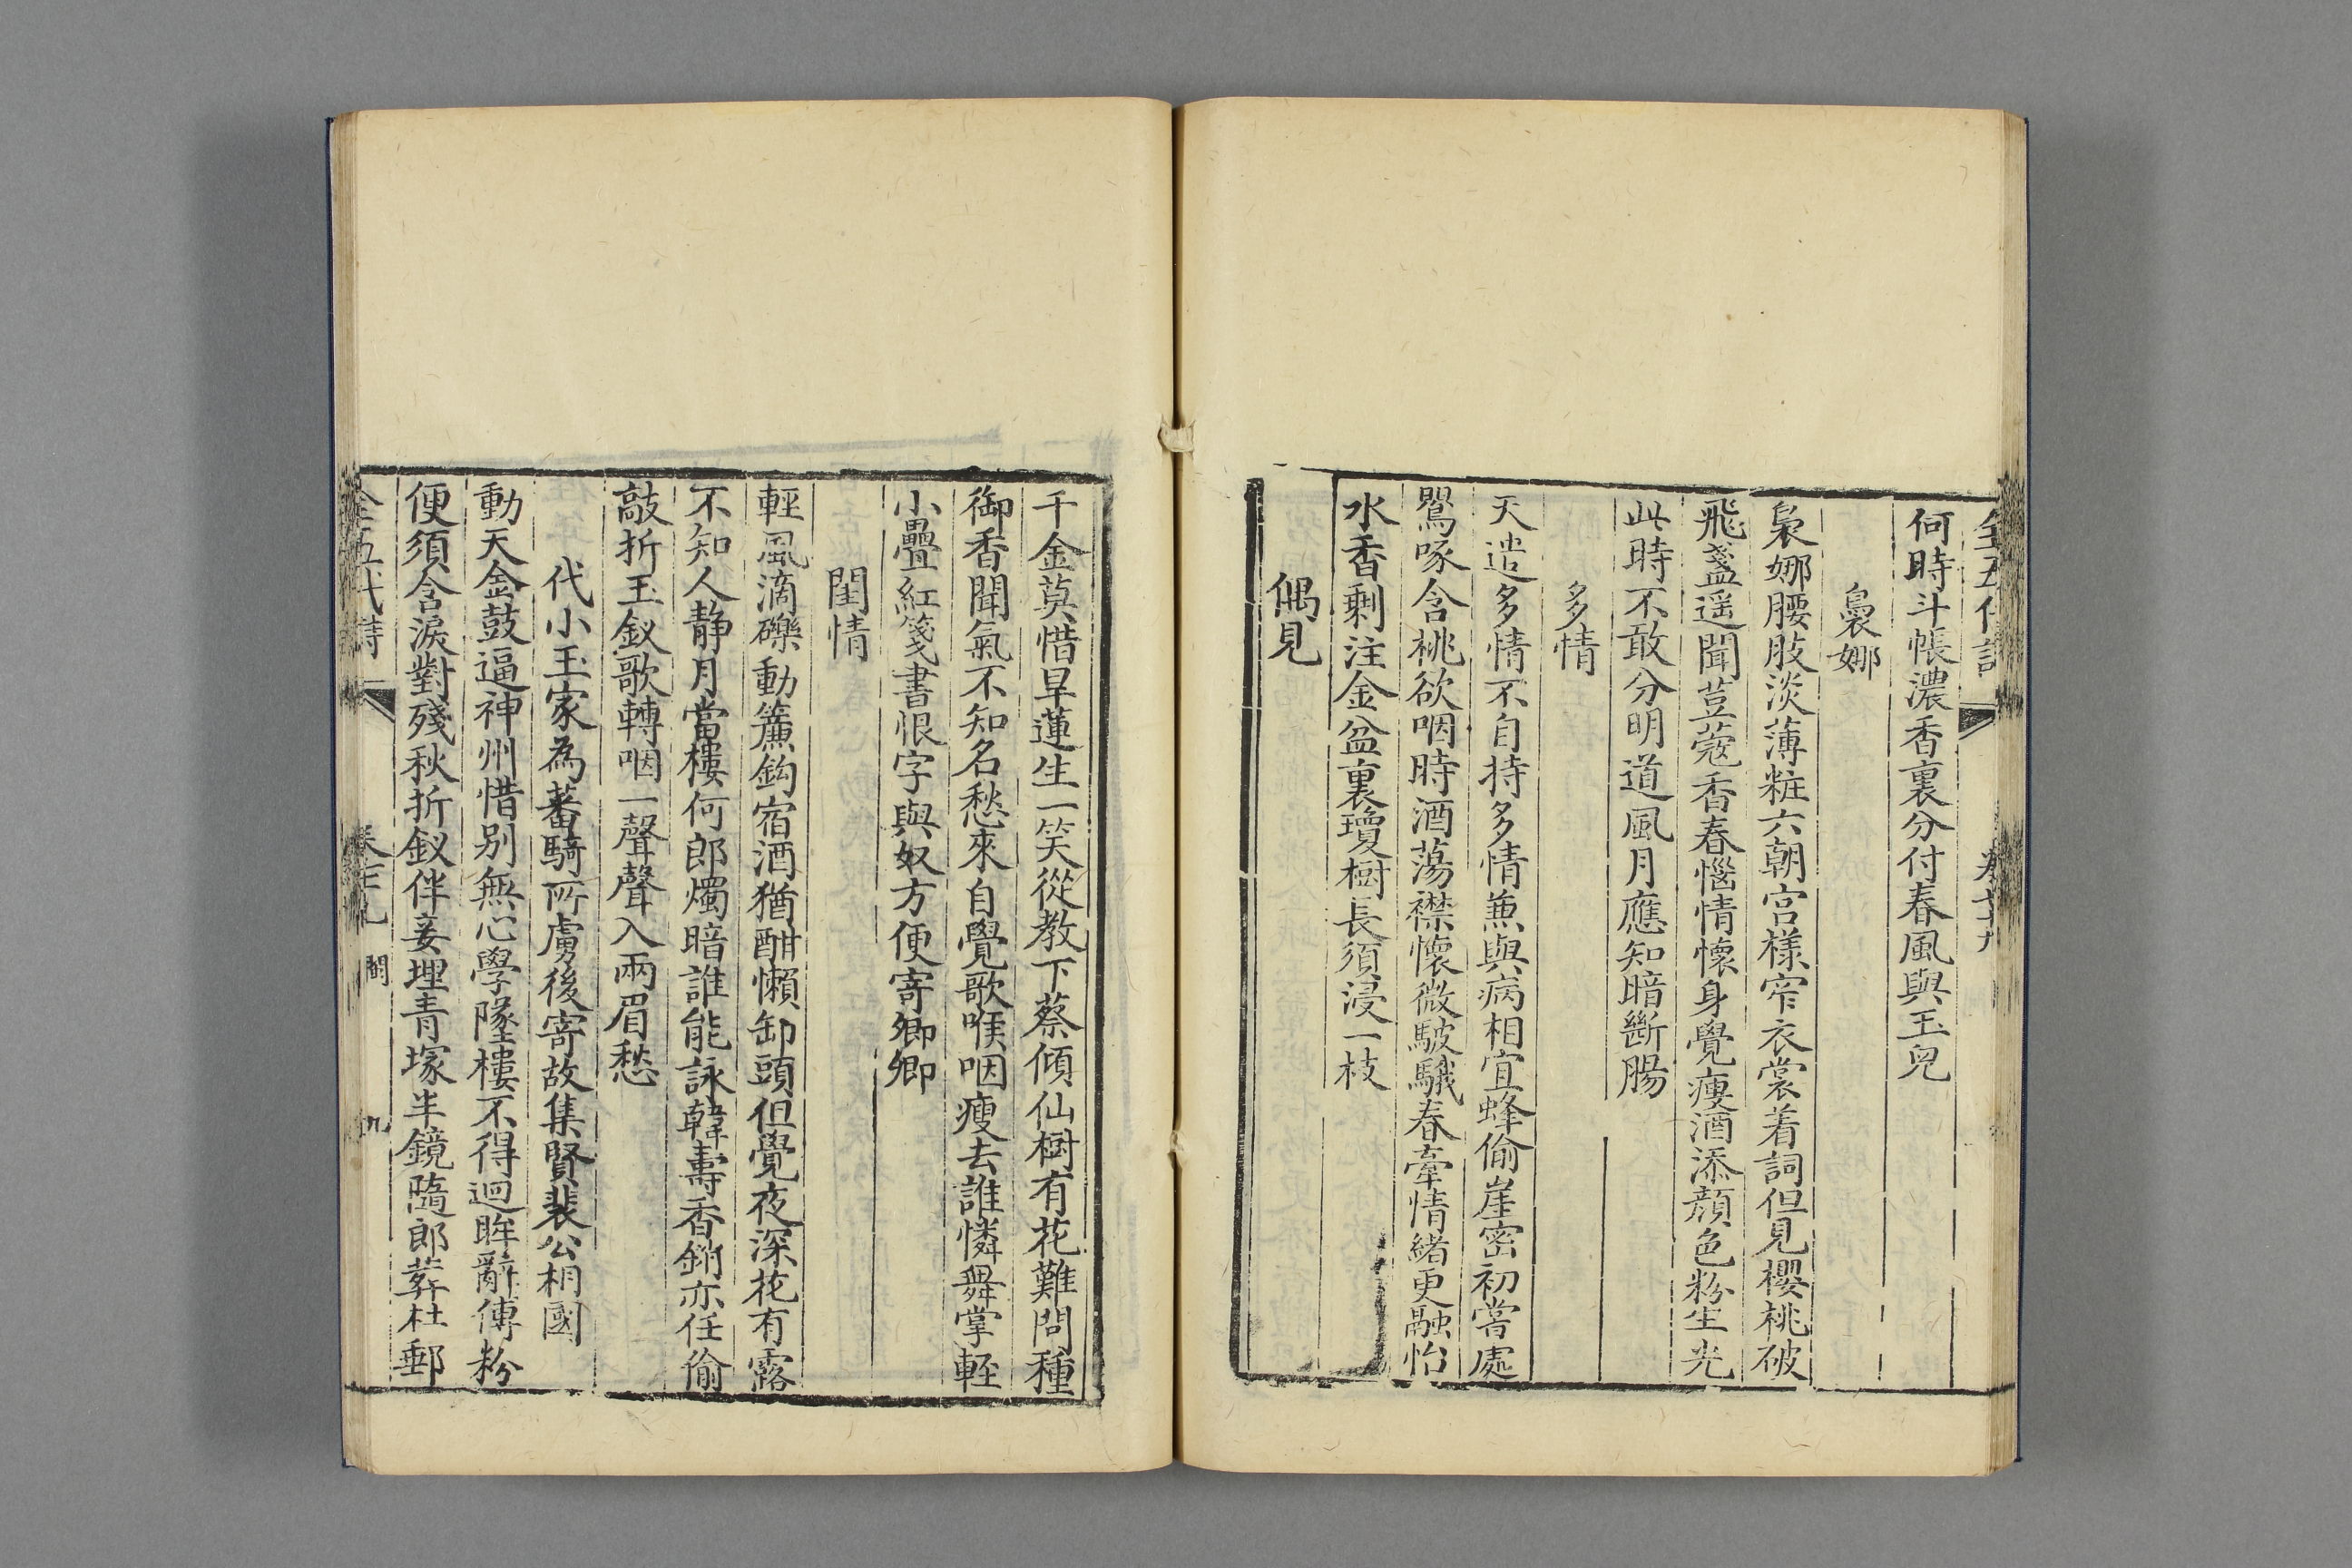 全五代詩
何時斗帳濃香裏分付春風與玉兒
裊娜
裊娜腰肢淡薄粧六朝宮樣窄衣裳着詞但見櫻桃破
飛盞遥聞荳蔻香春惱情懷身覺瘦酒添顔色粉生光
此時不敢分明道風月應知暗斷腸
多情
天遣多情不自持多情兼與病相宜蜂偷崖密初嘗處
鸎啄含桃欲咽時酒蕩襟懷微駊騀春牽情緒更融怡
水香剩注金盆裏瓊樹長須浸一枝
偶見
千金莫惜旱蓮生一笑從教下蔡傾仙樹有花難問種
御香聞氣不知名愁來自覺歌喉咽瘦去誰憐舞掌輕
小疊紅箋書恨字與奴方便寄卿卿
閨情
輕風滴礫動簾鈎宿酒猶酣懶卸頭但覺夜深花有露
不知人静月當樓何郎燭暗誰能詠韓壽香銷亦任偷
敲折玉釵歌轉咽一聲聲入兩眉愁
代小玉家為蕃騎所虜後寄故集賢裴公相國
動天金鼓逼神州惜别無心學墜樓不得迴眸辭傅粉
便須含淚對殘秋折釵伴妾埋青塚半鏡隨郎葬杜郵
全五代詩 卷七十九 閩 九